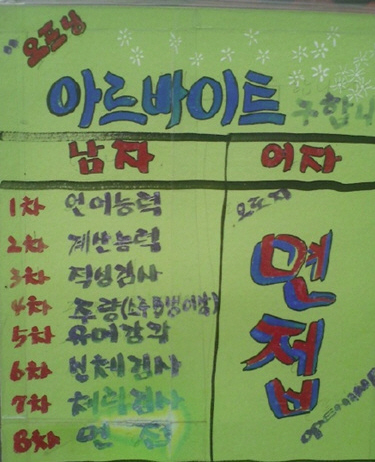 오프닝
아르바이트 구합니
남자 여자
1차 언어능력
2차 계산능력
3차 적성검사
4차 주량(소주 5병이상)
5차 유머감각
6차 신체검사
7차 체력검사
8차 면접
오로지
면접